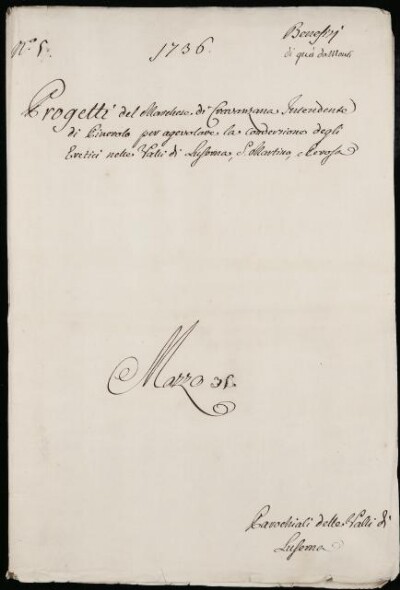 N.º 5.
1736.
Benefizj
di quà da Monti
Progetti del Marchese di Cravanzana Intendente
di Pinerolo per agevolare la conversione degli
Eretici nelle Valli di Luserna, S. Martino, e Perosa
Mazzo 31.
Parochiali delle Valli di
Luserna